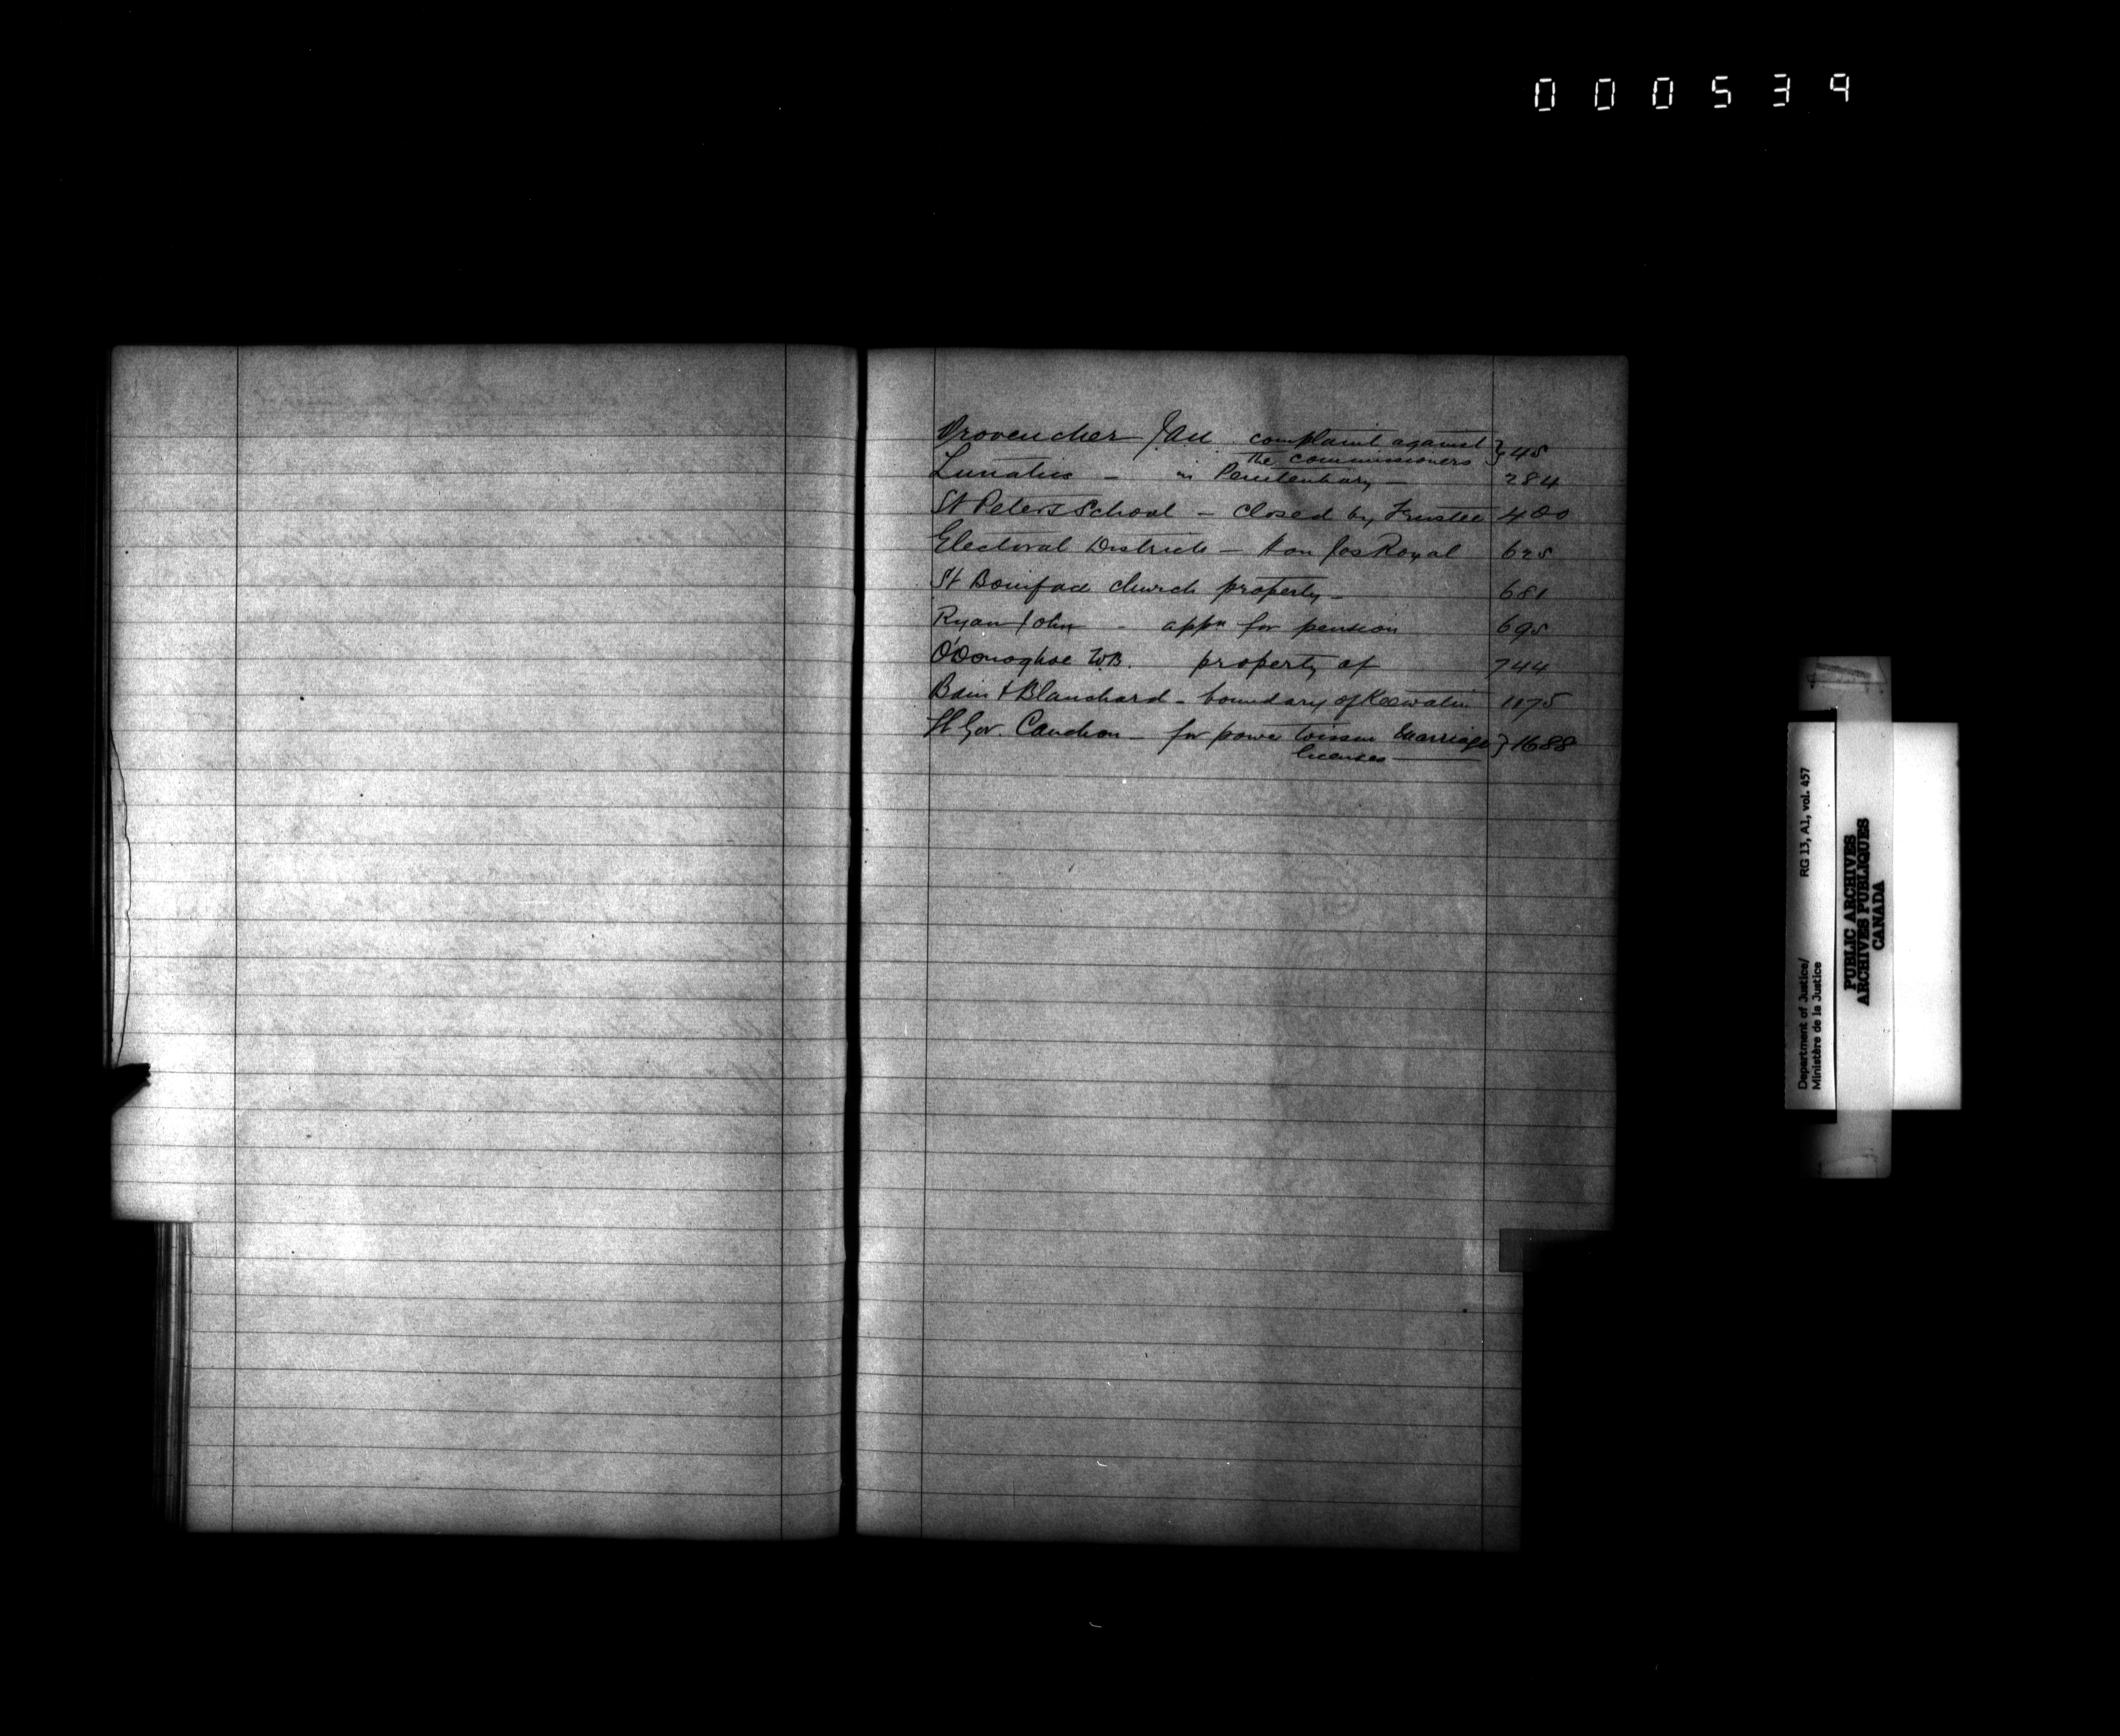 000539
Provencher JAN complaint against } 45
the commissioners
Lunatics - in Penitentiary - 284
St Peters School - closed by Trustee 400
Electoral Districts - Hon Jos Royal 625
St Boniface church property - 681
Ryan John - appn for pension 695
O'Donoghoe WB. property of 744
Bain & Blanchard - boundary of Keewatin 1175
Lt Gov. Cauchon - for power to issue Marriage } 1688
licenses
Department of Justice/ RG 13, A1, vol. 457
Ministère de la Justice
PUBLIC ARCHIVES
ARCHIVES PUBLIQUES
CANADA